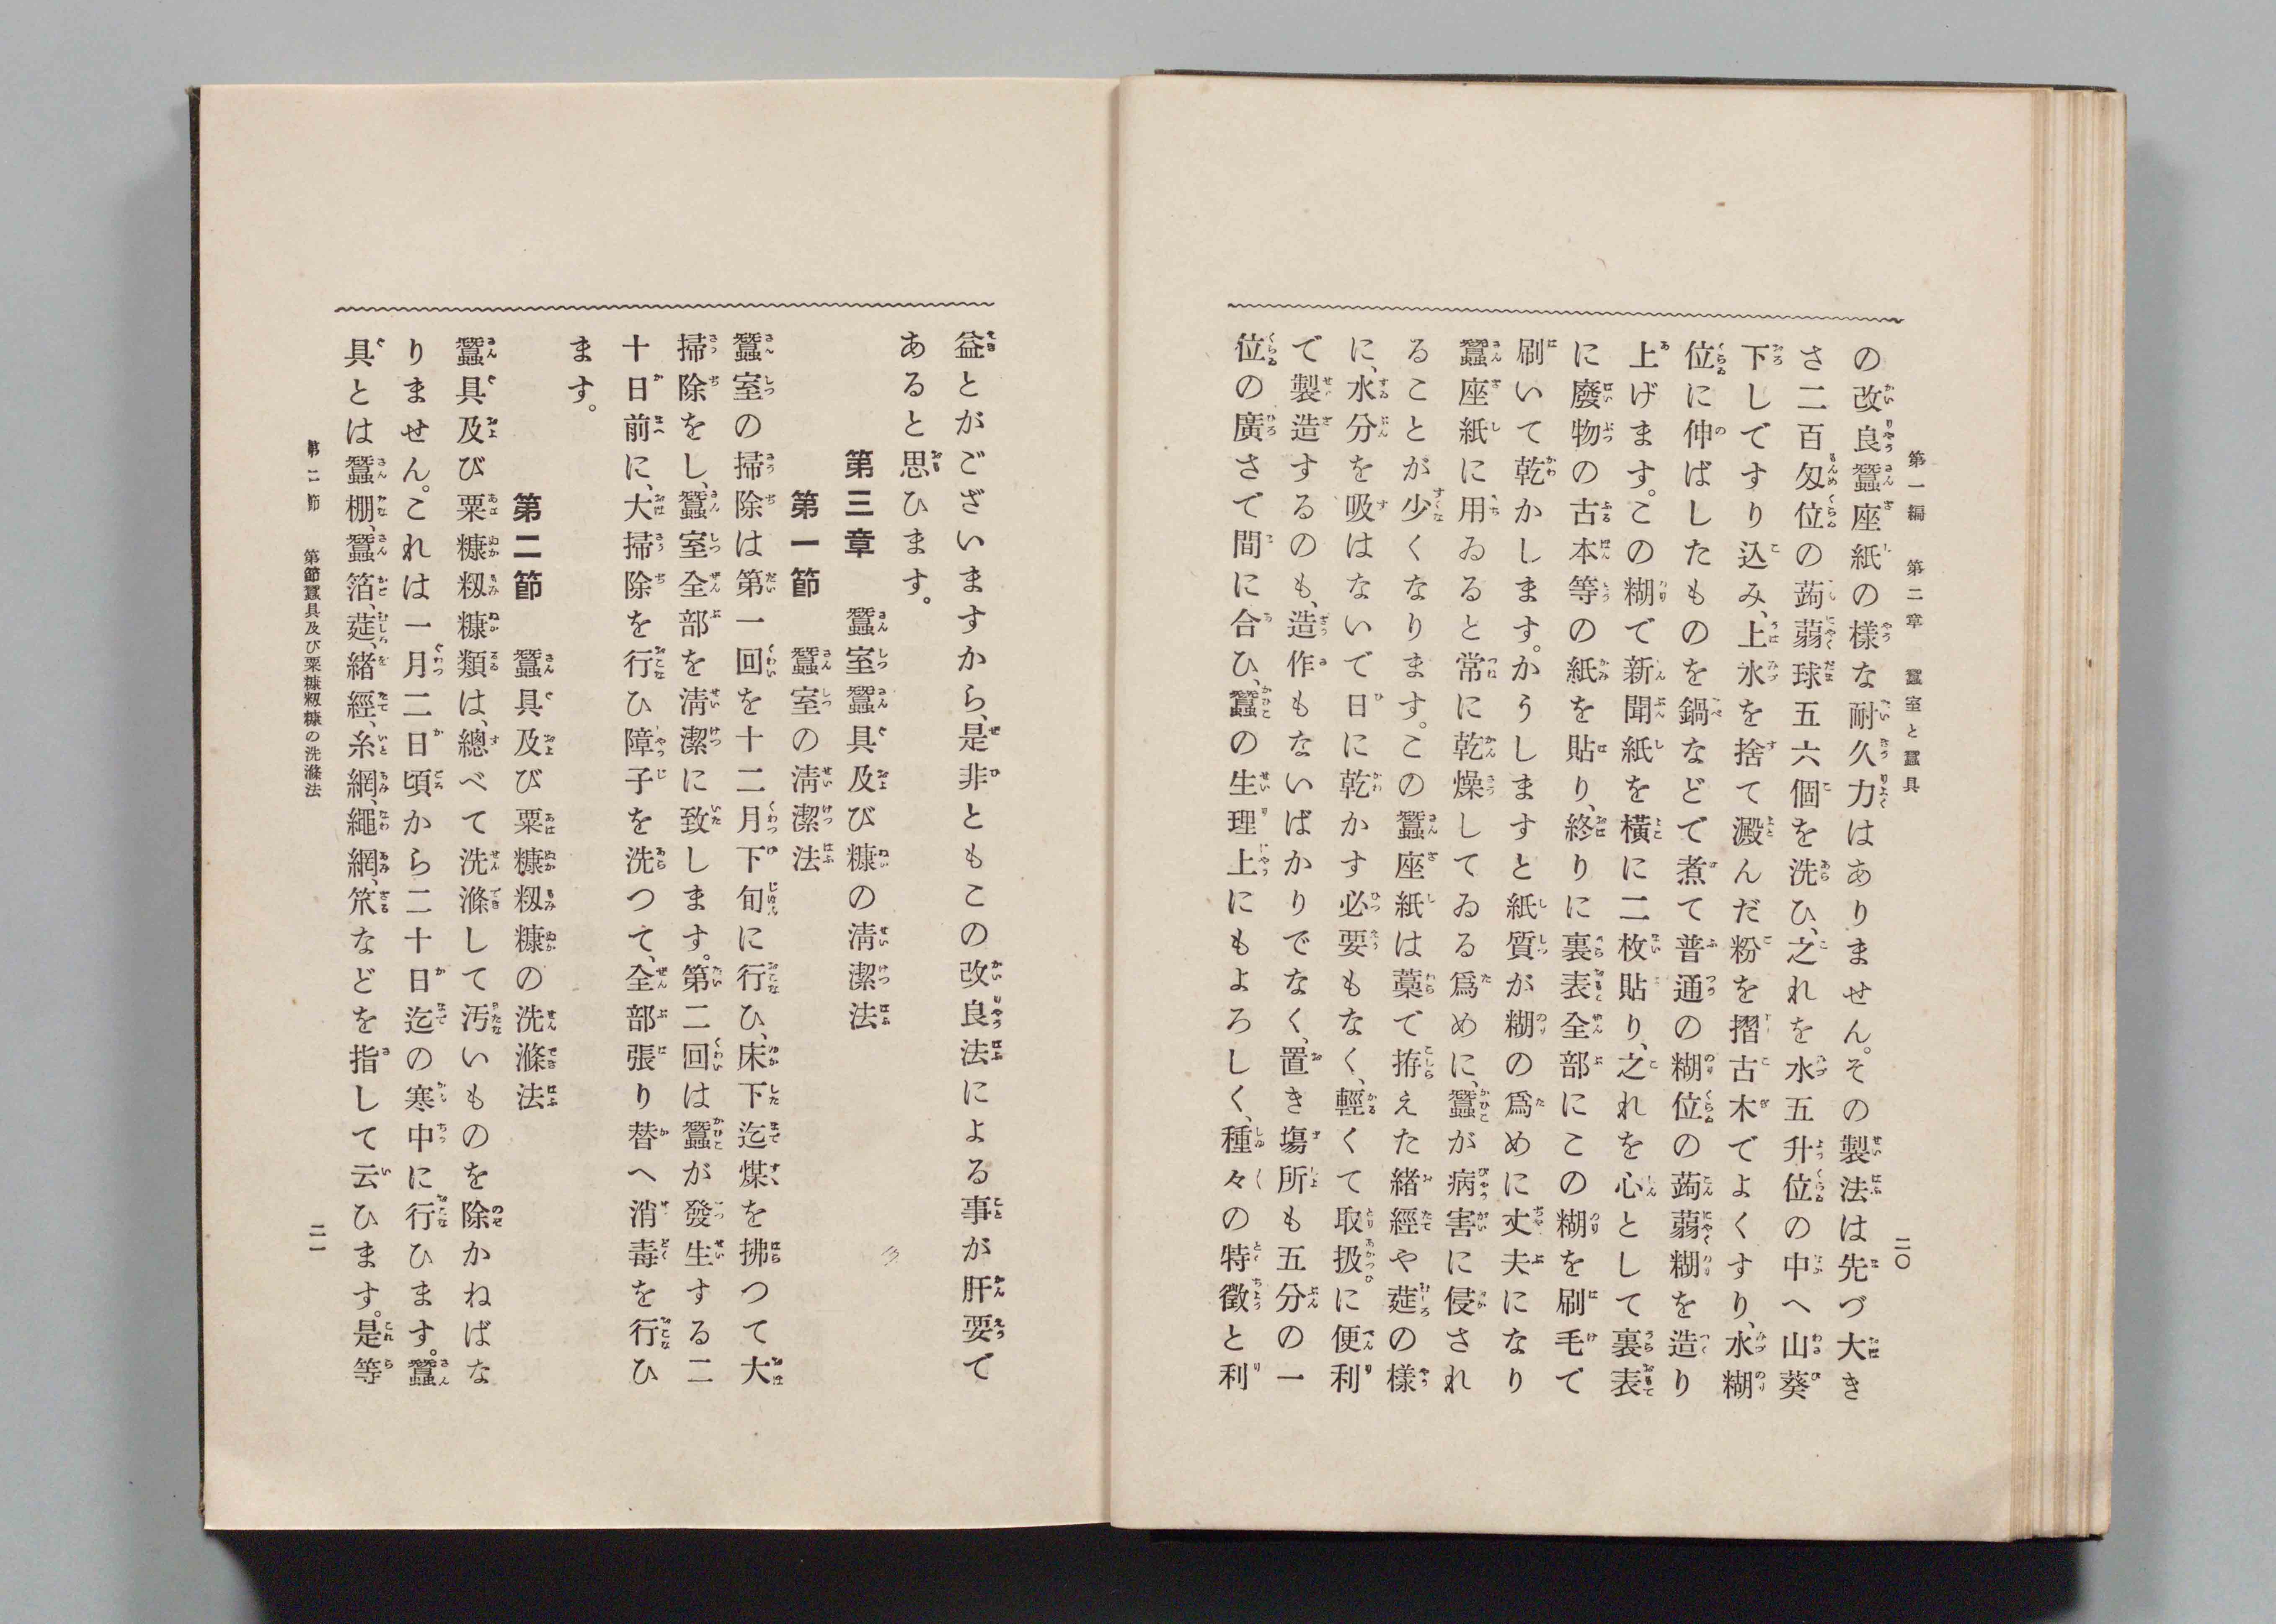 第一編　第二章　蠶室と蠶具
二〇
の改良蠶座紙の樣な耐久力はありません。その製法は先づ大き
さ二百匁位の蒟蒻球五六個を洗ひ、之れを水五升位の中へ山葵
下しですり込み、上水を捨て澱んだ粉を摺古木でよくすり、水糊
位に伸ばしたものを鍋などで煮て普通の糊位の蒟蒻糊を造り
上げます。この糊で新聞紙を橫に二枚貼り、之れを心として裏表
に廢物の古本等の紙を貼り、終りに裏表全部にこの糊を刷毛で
刷いて乾かします。かうしますと紙質が糊の爲めに丈夫になり
蠶座紙に用ゐると常に乾燥してゐる爲めに、蠶が病害に侵され
ることが少くなります。この蠶座紙は藁で拵えた緖經や莚の樣
に、水分を吸はないで日に乾かす必要もなく、輕くて取扱に便利
で製造するのも、造作もないばかりでなく、置き塲所も五分の一
位の廣さで間に合ひ、蠶の生理上にもよろしく、種々の特徵と利
益とがございますから、是非ともこの改良法による事が肝要で
あると思ひます。
第三章　蠶室蠶具及び糠の淸潔法
第一節　蠶室の淸潔法
蠶室の掃除は第一回を十二月下旬に行ひ、床下迄煤を拂つて大
掃除をし、蠶室全部を淸潔に致します。第二回は蠶が發生する二
十日前に、大掃除を行ひ障子を洗つて、全部張り替へ消毒を行ひ
ます。
第二節　蠶具及び粟糠籾糠の洗滌法
蠶具及び粟糠籾糠類は、總べて洗滌して汚いものを除かねばな
りません。これは一月二日頃から二十日迄の寒中に行ひます。蠶
具とは蠶棚、蠶箔、莚、緖經、糸網、繩網、笊などを指して云ひます。是等
第二節　第節蠶具及び粟糠籾糠の洗滌法
二一